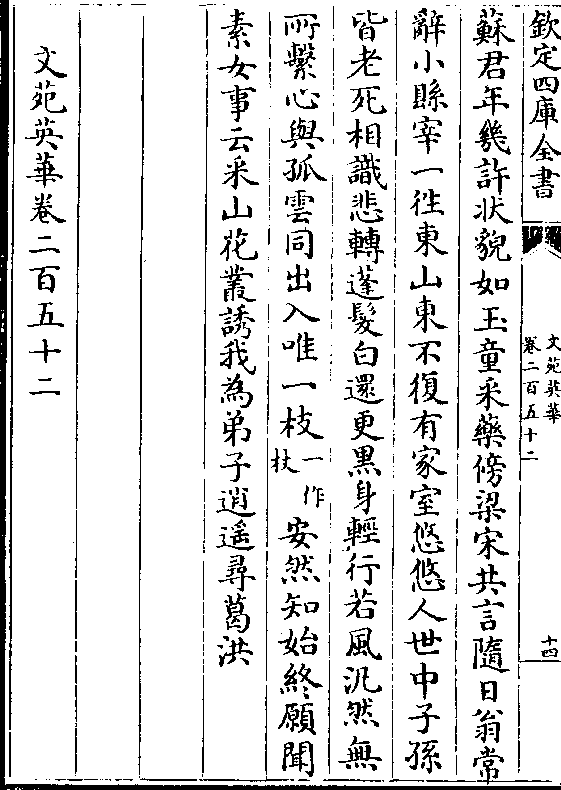 欽定四庫全書
文苑英華
卷二百五十二
十四
蘇君年幾許狀貌如玉童采藥傍梁宋共言隨日翁常
辭小縣宰一徃東山東不復有家室悠悠人世中子孫
皆老死相識悲轉蓬髮白還更黒身輕行若風汎然無
所繫心與孤雲同出入唯一枝一作杖安然知始終願聞
素女事云采山花叢誘我為弟子逍遥尋葛洪
文苑英華卷二百五十二